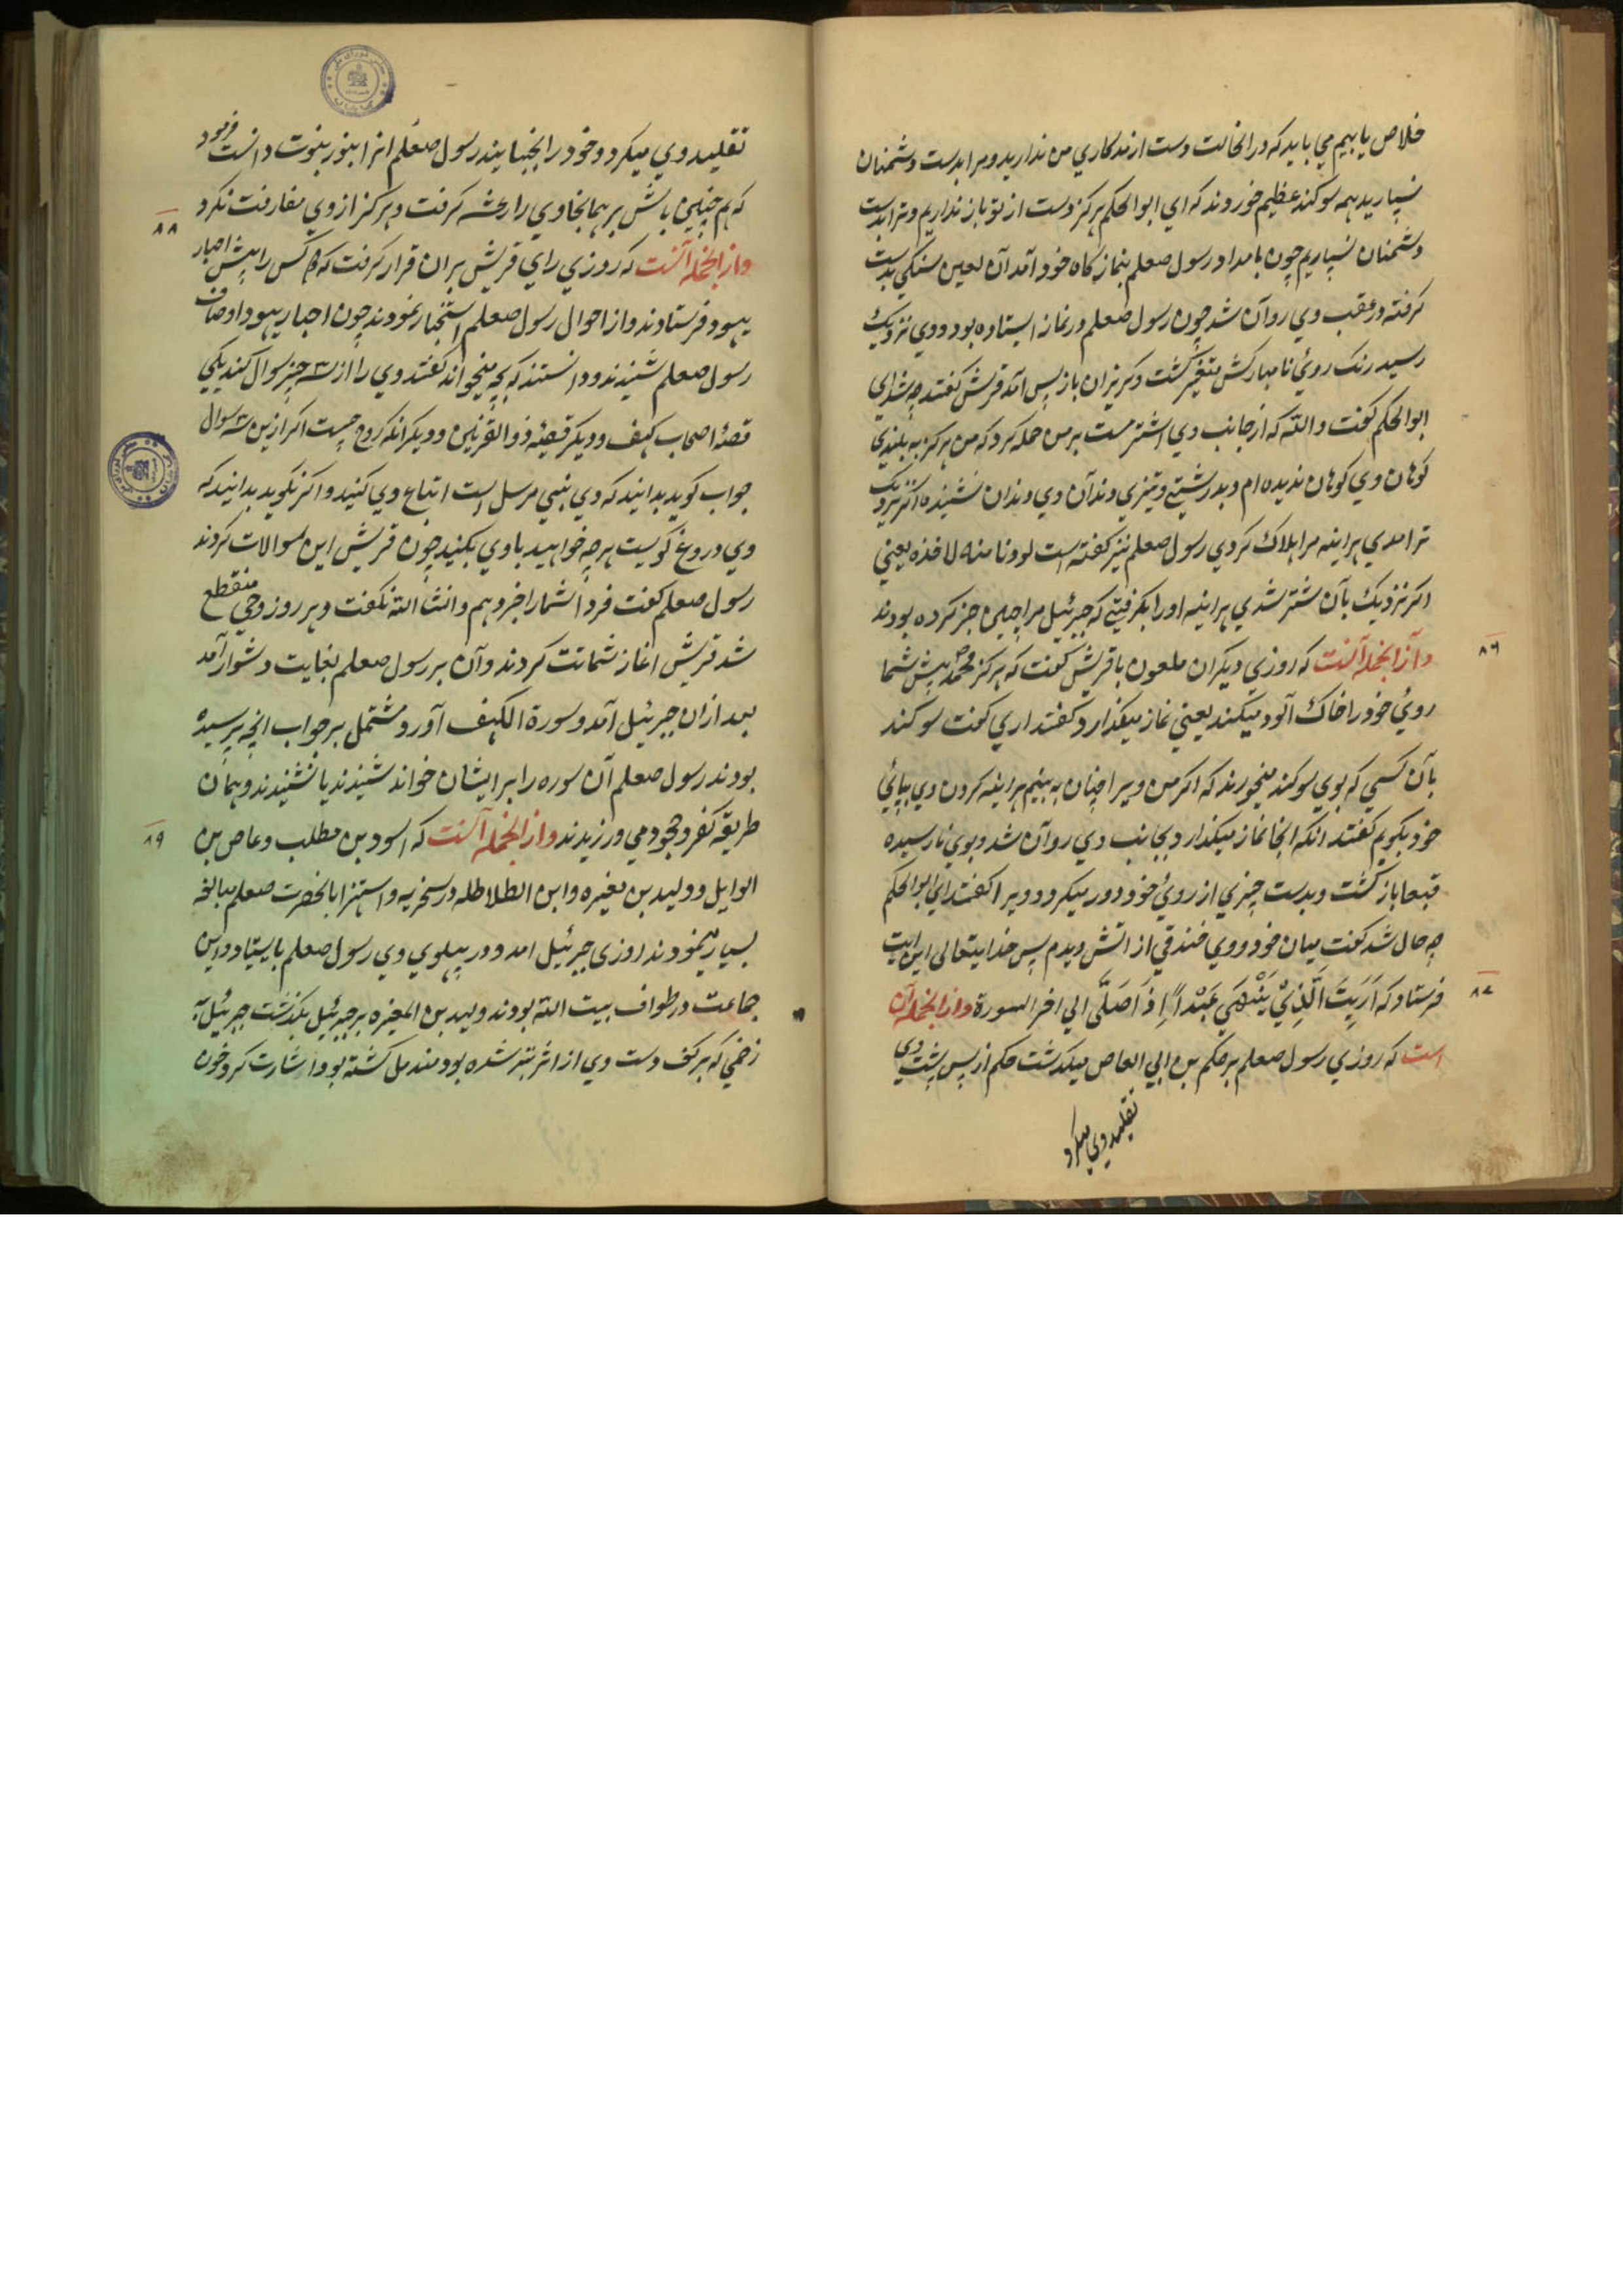 خلاص یابیم می باید که در انحالت دست از مدکاری من ندارید و مرا بدست دشمنان
نسپارید همه سوکند عظیم خوردند که ای ابوالحکم هرکز دست از تو باز نداریم و ترا بدست
دشمنان نسپاریم چون بامداد رسول صعلم بنماز کاه خود آمد آن لعین سنکی بدست
کرفته در عقب وی روآن شد چون رسول صعلم در نماز ایستاده بود و وی نزدیک
رسید رنک روئ نا مبارکش متغیر کشت و کریزان باز پس آمد قریش کفتند چه شد ای
ابوالحکم کفت والله که از جانب وی اشتر مست بر من حمله کرد که من هرکز به بلندی
کوهان وی کوهان ندیده ام و بدرشتی و تیزی دندآن وی دندان نشنیده اکر نزدیک
تر امدی هراینه مرا هلاک کردی رسول صعلم نیز کفته است لو دنا منه لاخذه یعنی
اکر نزدیک بآن شتر شدی هراینه او را بکرفتی که جبرئیل مرا چنین خبر کرده بودند
و از انجمله آنست که روزی دیکران ملعون با قریش کفت که هرکز محمد پیش شما
روئ خود را خاک آلود میکند یعنی نماز میکذارد کفتند اری کفت سوکند
بآن کسی که بوی سوکند میخورند که اکر من ویرا چنان به بینم هراینه کردن وی بپائی
خود بکوبم کفتند انکه انجا نماز میکذارد بجانب وی روآن شد و بوی نارسیده
قبعا باز کشت و بدست چیزی از روئ خود دور میکرد و ویرا کفتند ای ابوالحکم
چه حال شد کفت میان خود و وی خندقی از اتش دیدم پس خدایتعالی این ایت
فرستاد که اَرَیتَ الَّذِیْ یَنْهَی عَبْداً اِذَا صَلَّی الی اخر السورة و از انجمله آن
است که روزی رسول صعلم بر حکم بن ابی العاص میکذشت حکم از پس پشت وی
تقلید وی میکرد
تقلید وی میکرد و خود را بجنبانید رسول صعلم انرا بنور نبوت دانست فرمود
که هم چنین باش بر همانجا وی را رعشه کرفت و هرکز از وی مفارقت نکرد
و از انجمله آنست که روزی رای قریش بران قرار کرفت که کس را پیش احبار
یهود فرستادند و از احوال رسول صعلم استخبار نمودند چون احبار یهود اوصاف
رسول صعلم شنیدند و دانستند که بچه میخواند کفتند وی را از ۳ چیز سوال کنید یکی
قصهٔ اصحاب کهف و دیکر قصهٔ ذوالقرنین و دیکر انکه روح چیست اکر ازین ۳ سوال
جواب کوید بدانید که وی نبی مرسل است اتباع وی کنید و اکر نکوید بدانید که
وی دروغ کویست هرچه خواهید با وی بکنید چون قریش این سوالات کردند
رسول صعلم کفت فردا شما را خبر دهم و انشا الله نکفت و هر روز وحی منقطع
شد قریش اغاز شماتت کردند و آن بر رسول صعلم بغایت دشوار آمد
بعد ازان جبرئیل آمد و سورة الکهف آورد مشتمل بر جواب انچه پرسیده
بودند رسول صعلم آن سوره را بر ایشان خواند شنیدند یا نشنیدند و بهمان
طریقه کفر و جحود می ورزیدند و از انجمله آنست که اسود بن مطلب و عاص بن
الوایل و ولید بن مغیره و ابن الطلاطله در سخریه و استهزا بانحضرت صعلم مبالغه
بسیار مینمودند روزی جبرئیل امد و در پهلوی وی رسول صعلم بایستاد و این
جماعت در طواف بیت الله بودند ولید بن المغیره بر جبرئیل بکذشت جبرئیل به
زخمی که بر کف دست وی از اثر تیر شده بود مندمل کشته بود اشارت کرد خون
۸۶
۸۷
۸۸
۸۹